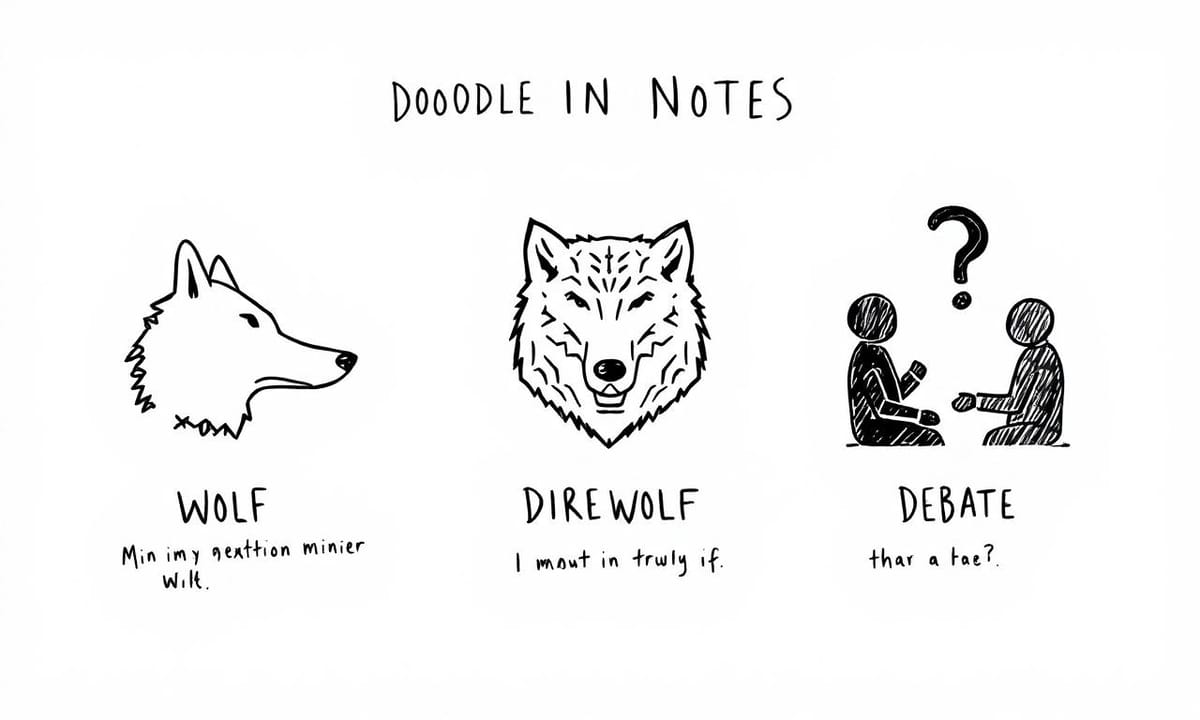 DOOODLE IN NOTES
WOLF
Min imy gexttion minier
Wilt.
DIREWOLF
I mout in truly if.
DEBATE
thar a tae?.